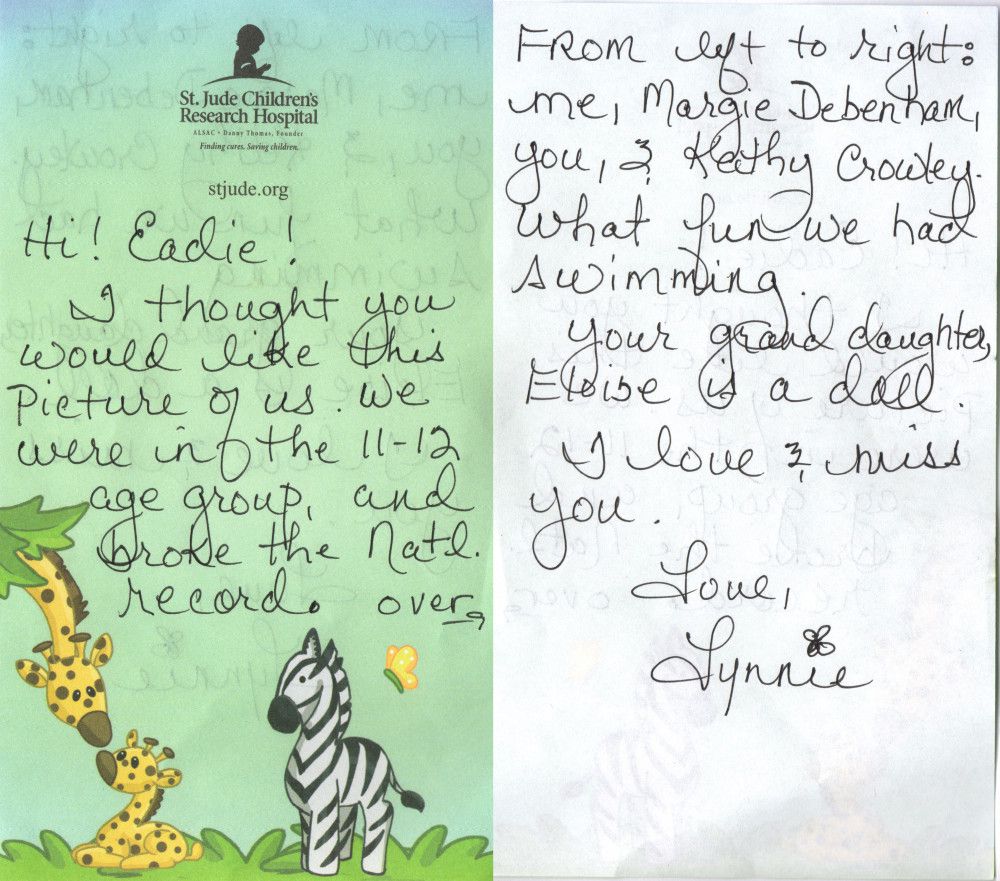 St. Jude Children's
Research Hospital
ALSAC • Danny Thomas, Founder
Finding cures. Saving children.
stjude.org
Hi! Eadie!
I thought you
would like this
Picture of us. We
were in the 11-12
age group, and
broke the Natl.
record. over
From left to right:
me, Margie Debenham,
you, & Kathy Crowley.
What fun we had
swimming.
Your grand daughter,
Eloise is a doll.
I love & miss
you.
Love,
Lynnie